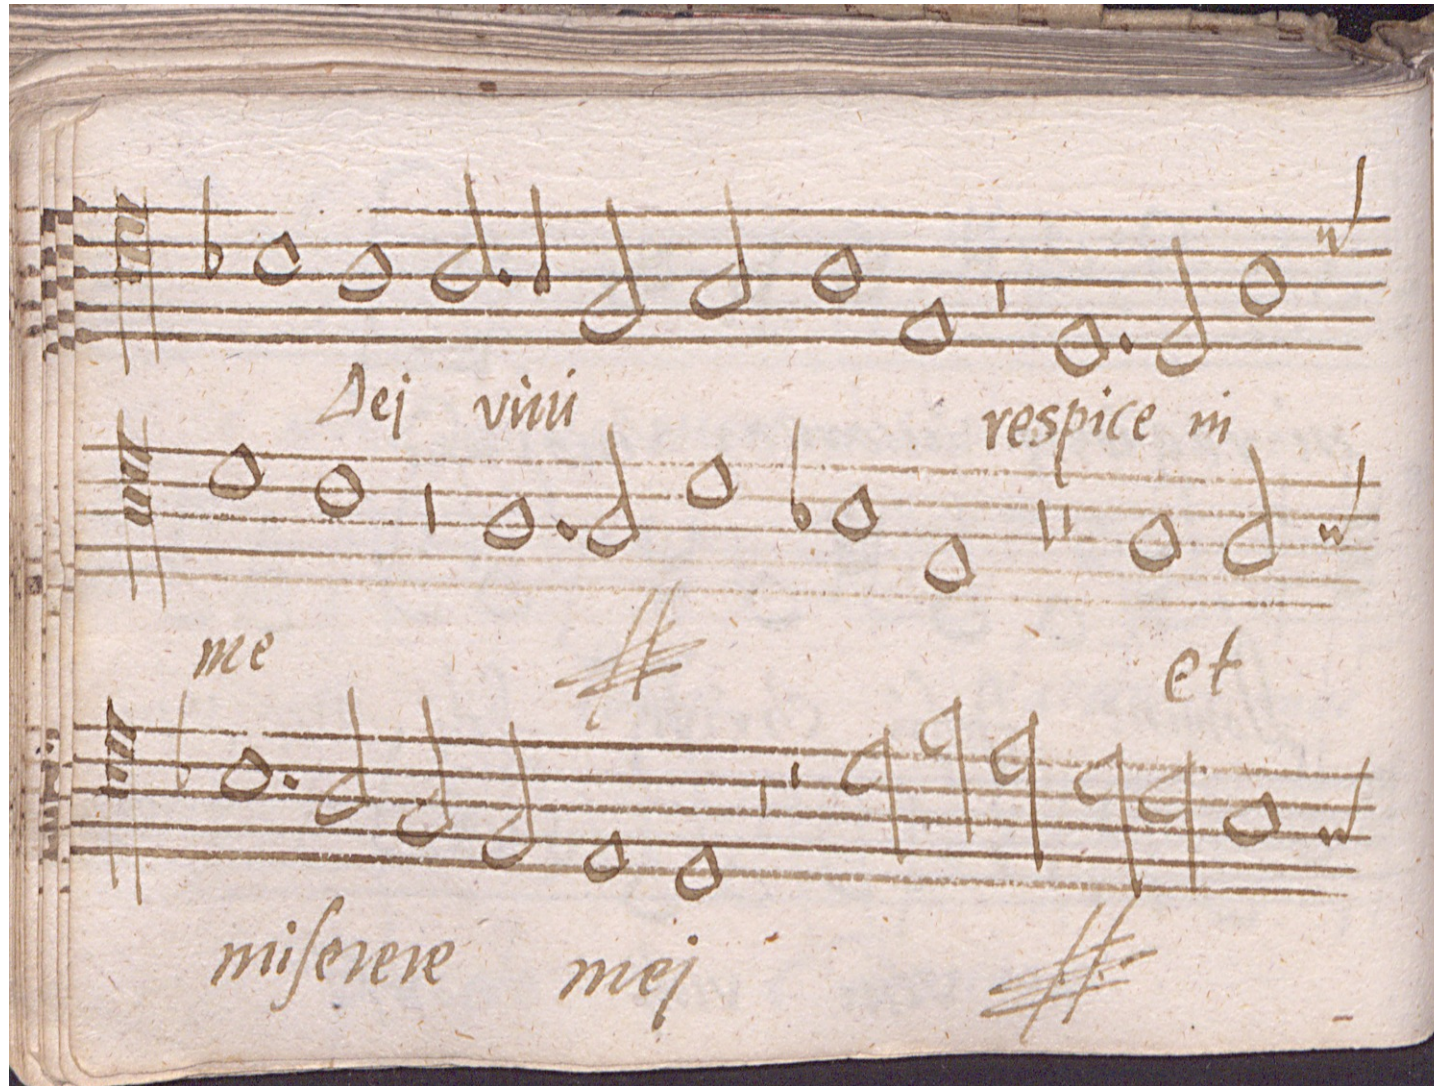 Dej viuii
respice in
me et
miserere mej